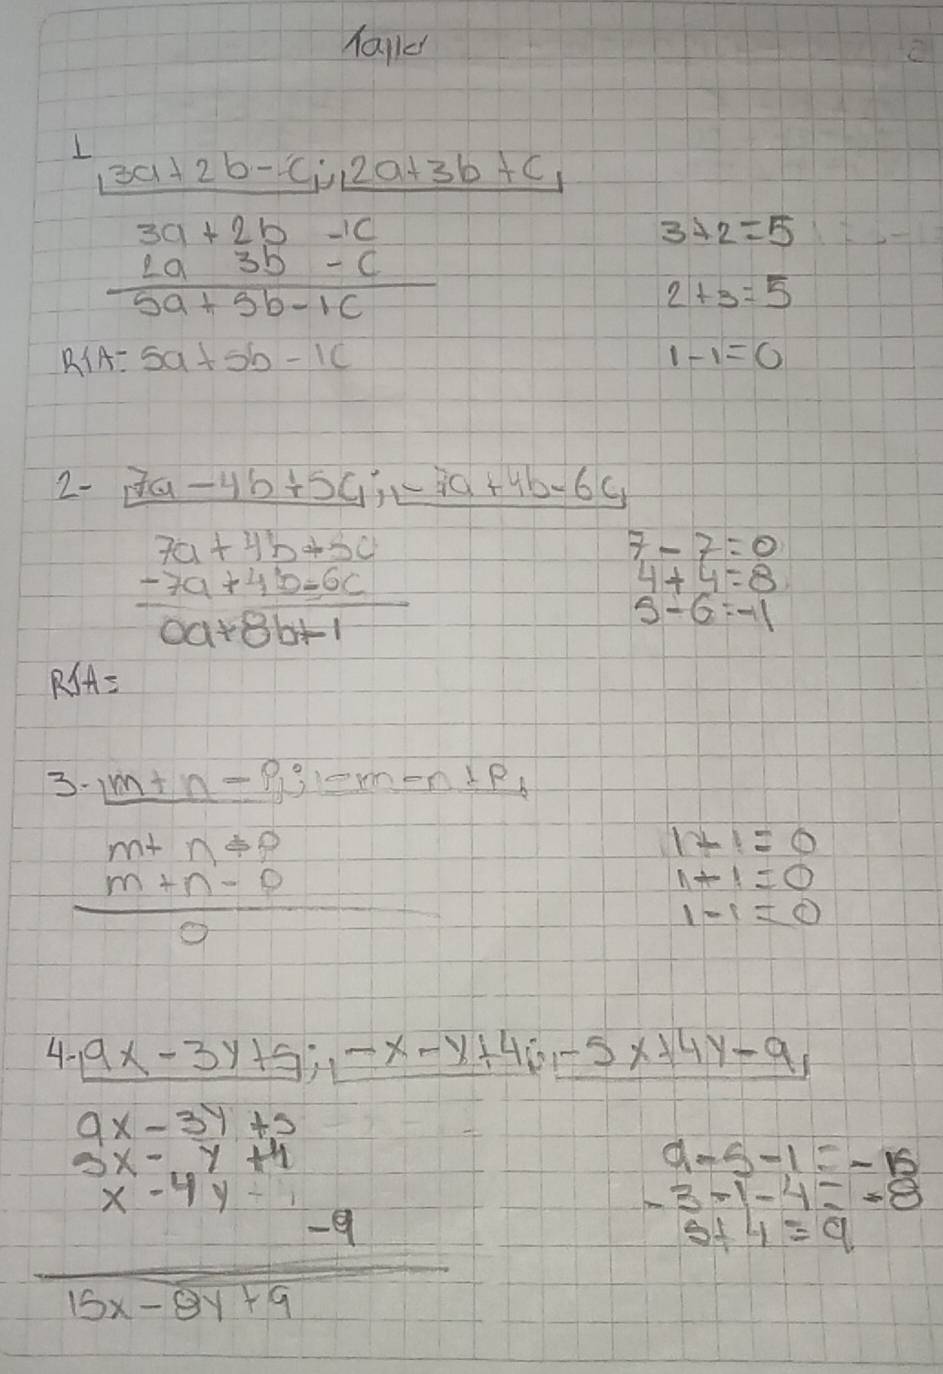 Taller
1
3a+2b-c; 2a+3b+c
3a+2b-1c
3+2=5
2a 3b -c
5a+5b-1c
2+3=5
R/A= 5a+5b-1c
1-1=0
2- 7a-4b+5c; -7a+4b-6c
7a+4b+5c
7-7=0
-7a+4b-6c
4+4=8
0a+8b+-1
5-6=-1
R/A=
3- m+n-p; -m-n+p
m+n+p
1+1=0
m+n-p
1+1=0
0
1-1=0
4- 9x-3y+5; -x-y+4; -5x+4y-9
9x-3y+5
5x-y+4
9-5-1=-15
x-4y
-3-1-4=-8
-9
5+4=9
15x-8y+9